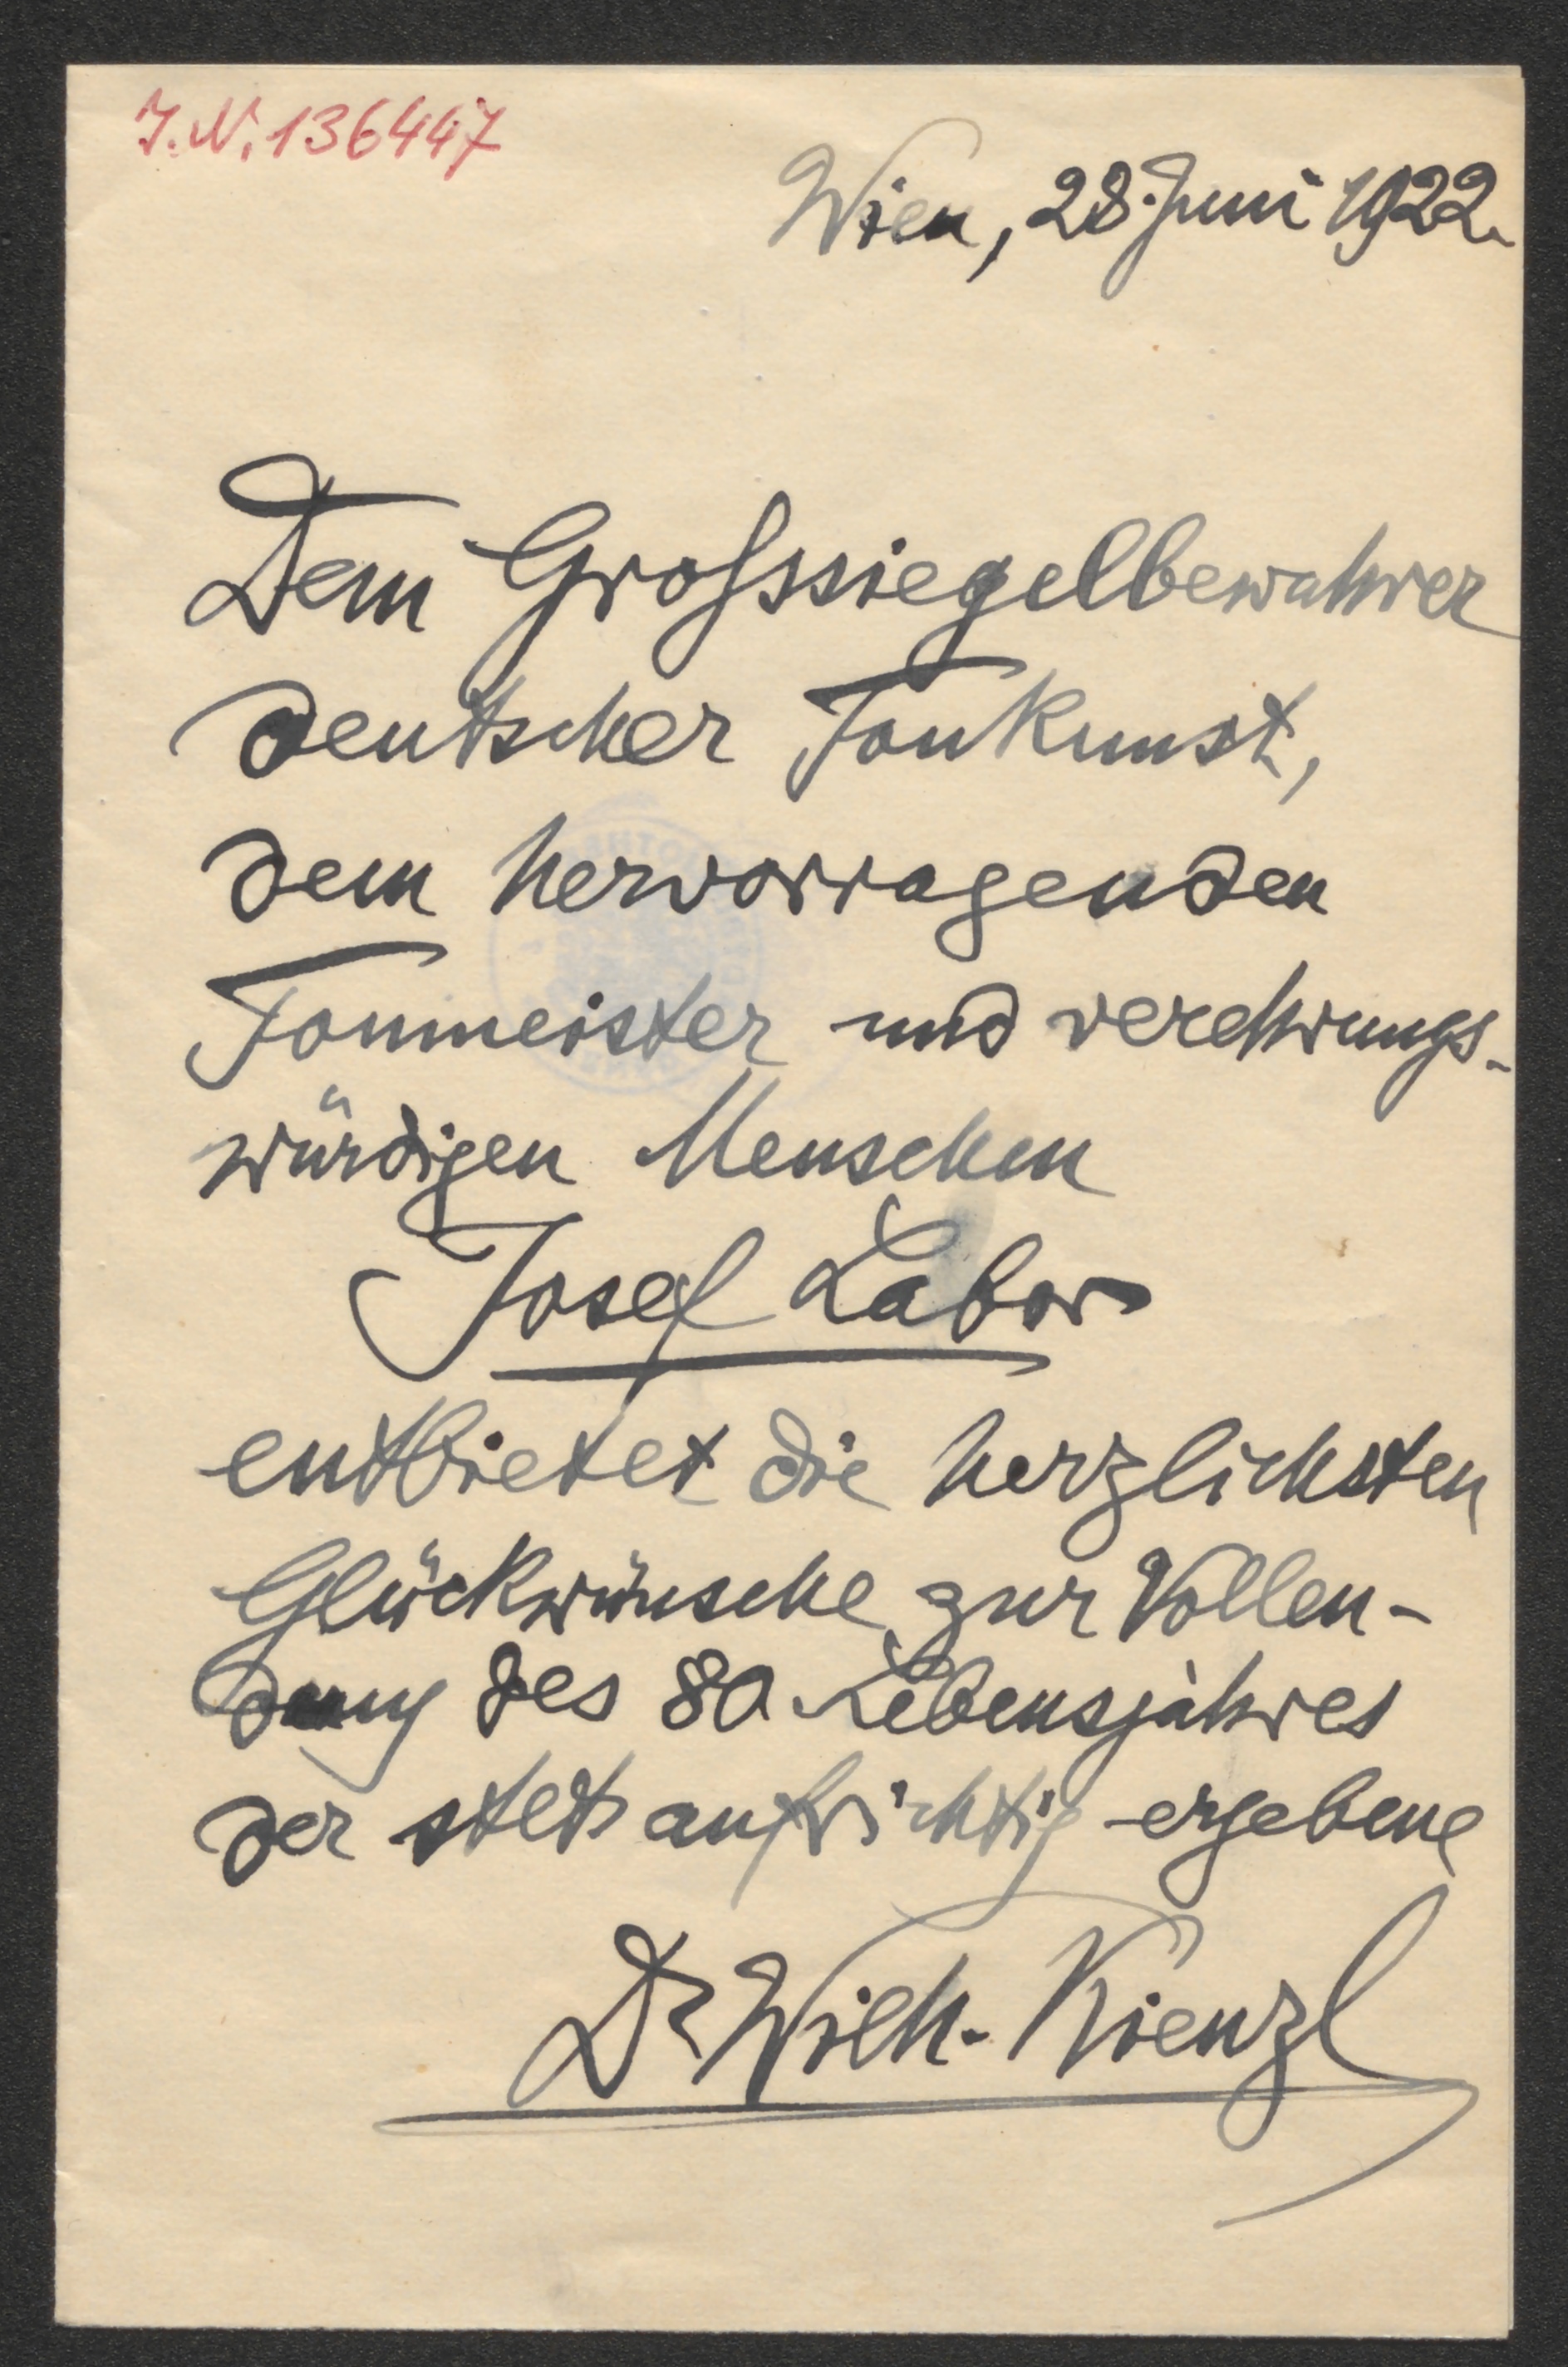 J.N. 136447
Wien, 28. Juni 1922.
Dem Grosssiegelbewahrer
deutscher Tonkunst,
dem hervorragenden
Tonmeister und verehrungs-
würdigen Menschen
Josef Labor
entbietet die herzlichsten
Glückwünsche zur Vollen-
dung des 80. Lebensjahres
der stets aufrichtig ergebene
Dr Wilh. Kienzl